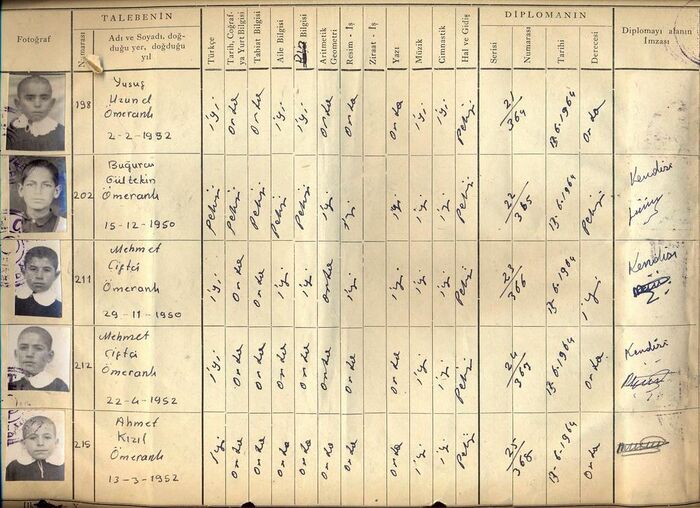 TALEBENİN
DİPLOMANIN
Fotoğraf
Numarası
Adı ve Soyadı, doğ-
duğu yer, doğduğu
yıl
Türkçe
Tarih, Coğraf-
ya Yurt Bilgisi
Tabiat Bilgisi
Aile Bilgisi
Bilgisi
Aritmetik
Geometri
Resim - İş
Ziraat - İş
Yazı
Müzik
Cimnastik
Hal ve Gidiş
Serisi
Numarası
Tarihi
Derecesi
Diplomayı alanın
İmzası
198
Yusuf
Uzunel
Ömeranlı
2-2-1952
iyi
Orta
Orta
iyi
iyi
Orta
Orta
Orta
iyi
iyi
Pekiyi
21/364
17-6-1964
Orta
202
Gültekin
Ömeranlı
15-12-1950
Pekiyi
Pekiyi
Pekiyi
Pekiyi
Pekiyi
iyi
iyi
iyi
iyi
iyi
Pekiyi
22/365
17-6-1964
Pekiyi
Kendisi
211
Mehmet
Çiftçi
Ömeranlı
29-11-1950
iyi
Orta
Orta
iyi
iyi
Orta
iyi
Orta
iyi
iyi
Pekiyi
23/366
17-6-1964
iyi
Kendisi
212
Mehmet
Çiftçi
Ömeranlı
22-4-1952
iyi
Orta
Orta
Orta
Orta
Orta
Orta
Orta
iyi
iyi
Pekiyi
24/367
17-6-1964
Orta
Kendisi
215
Ahmet
Kızıl
Ömeranlı
13-3-1952
iyi
Orta
Orta
Orta
Orta
Orta
Orta
Orta
iyi
iyi
Pekiyi
25/368
17-6-1964
Orta